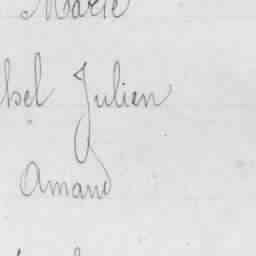 Marie
bel Julien
Amand